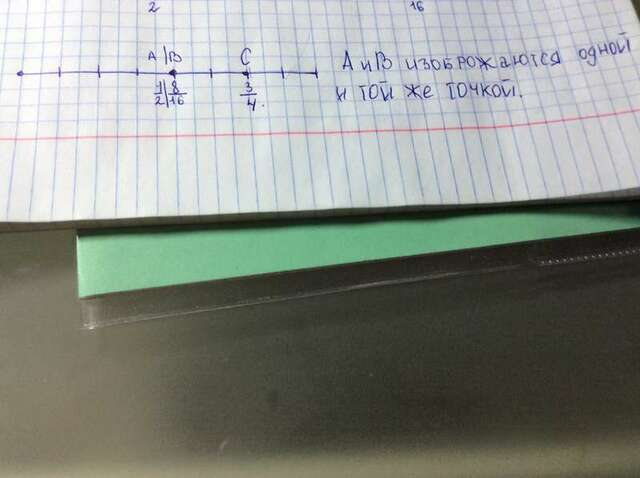 2 16
A | B C
1/2 | 8/16 3/4.
А и В изображаются одной
и той же точкой.